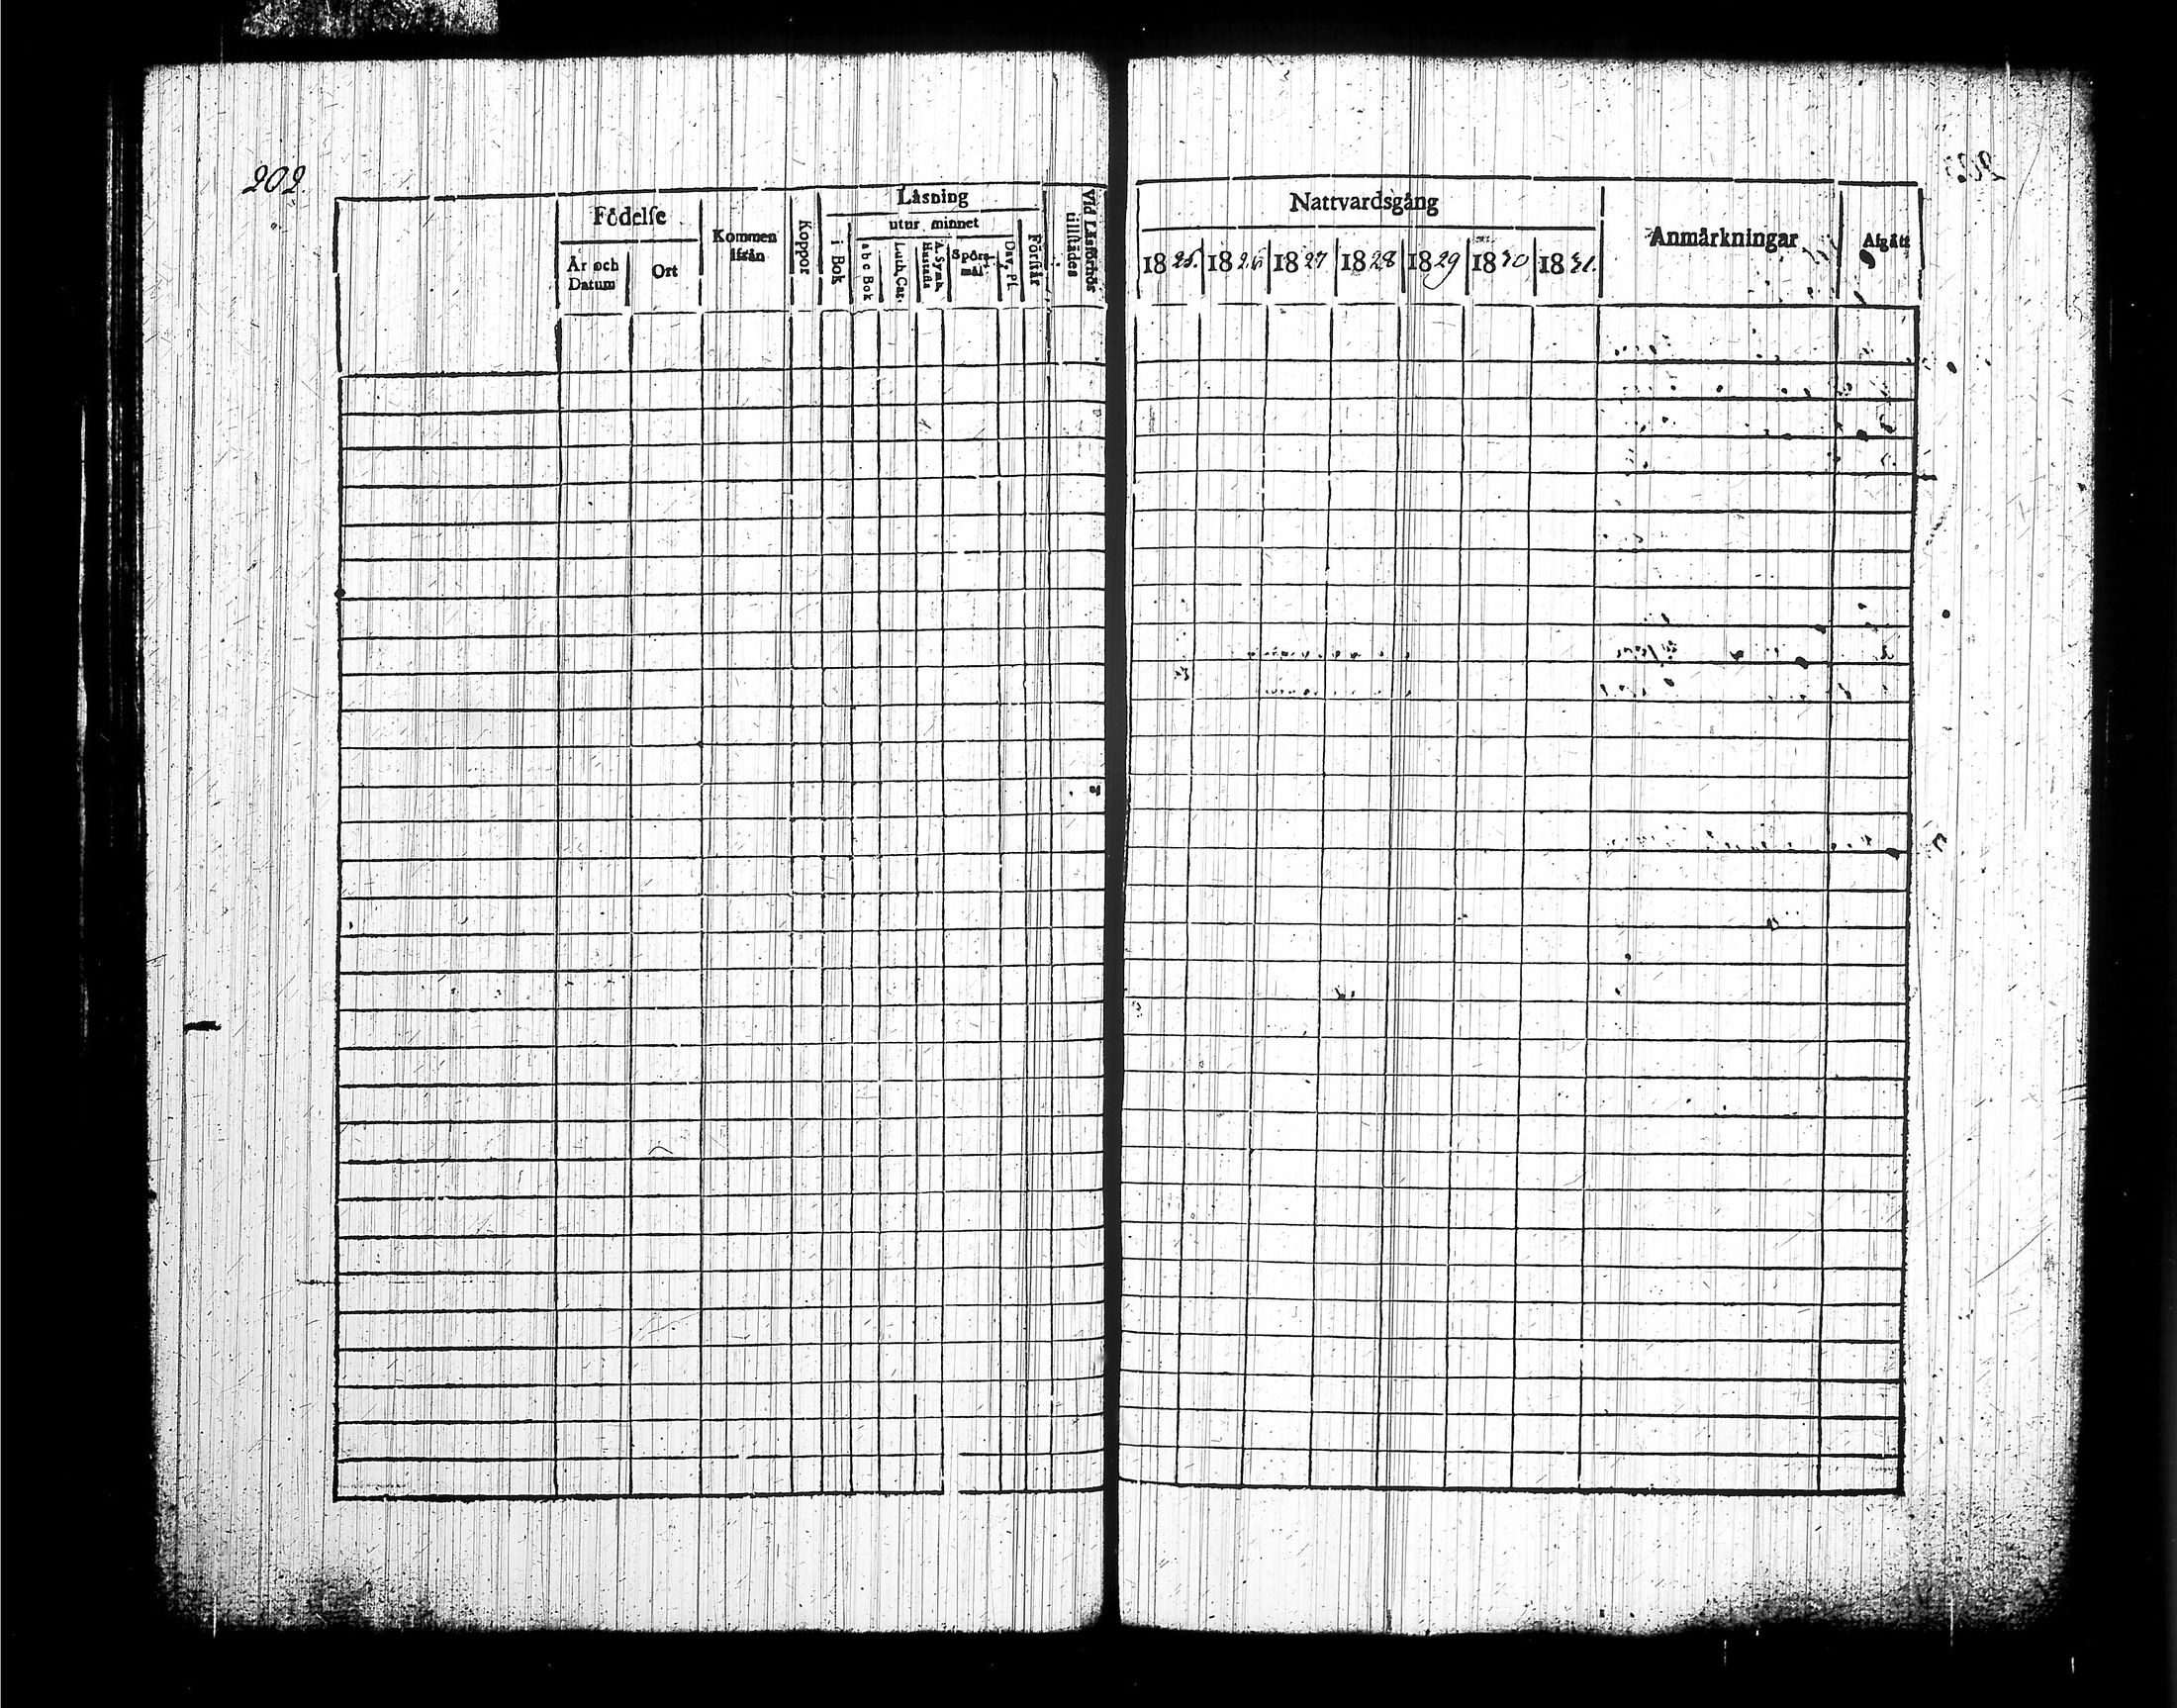 202
Födelſe
År och Datum
Ort
Kommen ifrån
Koppor
Läsning
i Bok
utur minnet
a b c Bok
Luth. Cat.
A. Symb. Hustafla
Spörsmål
Dav. Pſ.
Förſtår
Vid Läsförhör tillſtädes
Nattvardsgång
1825. 1826 1827 1828 1829 1830 1831.
Anmärkningar
Afgått